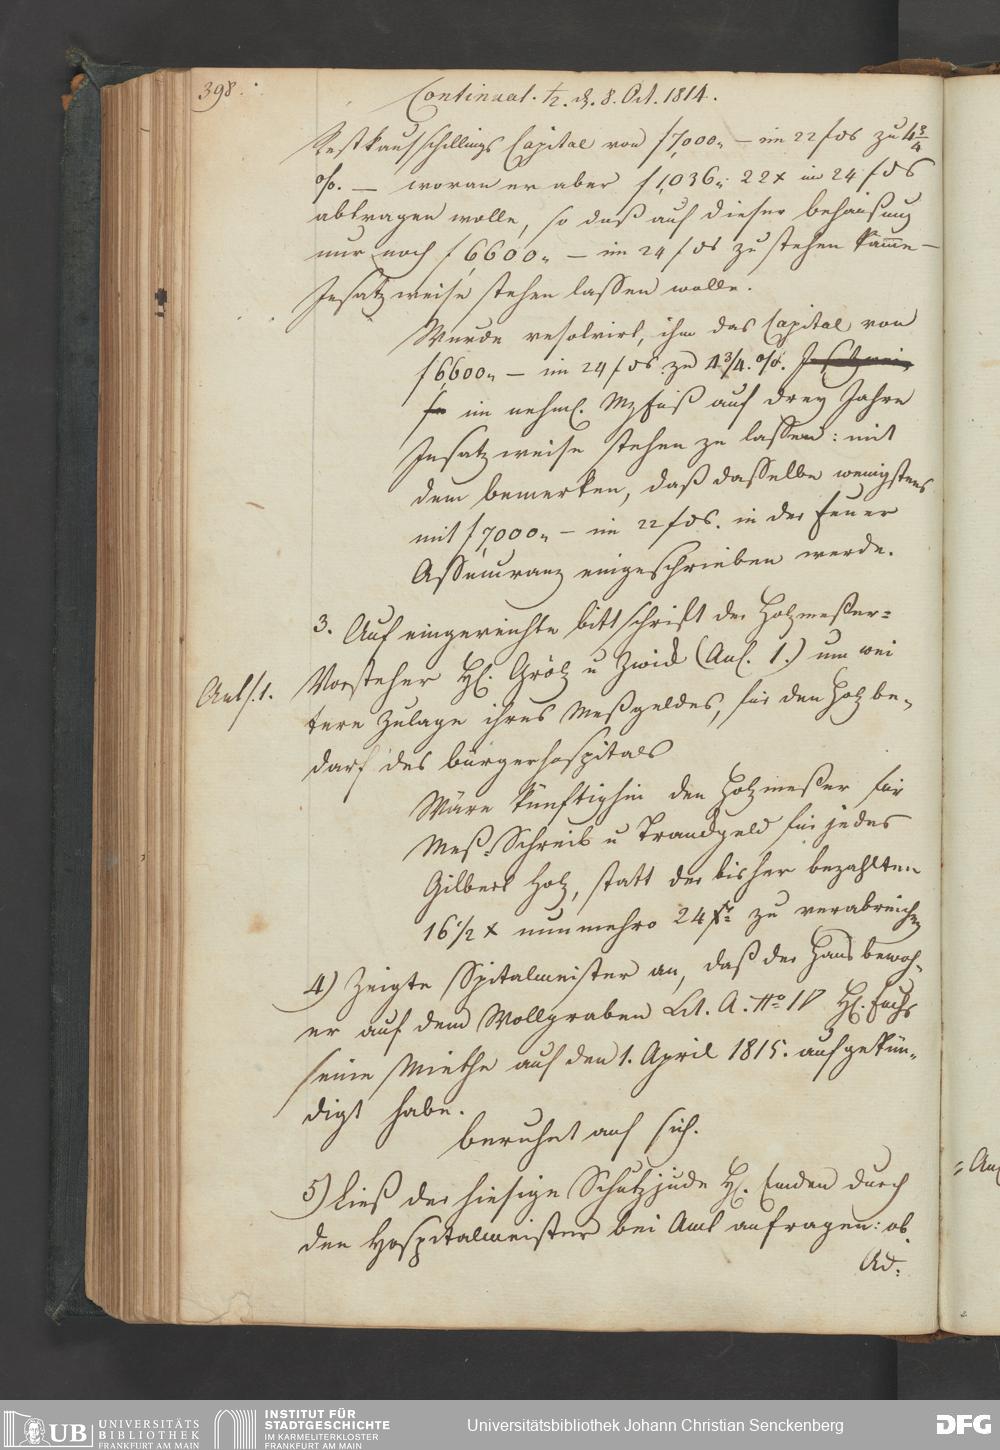 398.
Continuat. ♄. d. 8. Oct. 1814.
Restkaufschillings Capital von f 7,000„ — im 22 f ds zu 4¾
%. — woran er aber f 1,036„ 22 x im 24 f ds
abtragen wolle, so daß auf dieser behaußung
nur noch f 6600„ — im 24 f ds zu stehen käme —
Insatzweise stehen lassen wolle.
Wurde resolvirt, ihm das Capital von
f 6,600„ — im 24 f ds. zu 4¾. %.
im nehml. Mzfuß auf drey Jahre
Insatzweise stehen zu lassen: mit
dem bemerken, daß dasselbe wenigstens
mit f 7,000„ — im 22 f ds. in der Feuer
Assecuranz eingeschrieben werde.
3. Auf eingereichte bittschrift der Holzmeßer=
Vorsteher H. Grölz u Zwick (Anl. 1.) um wei
Anl. 1.
tere Zulage ihres Meßgeldes, für den Holzbe„
darf des bürgerhospitals
Wäre künftighin den Holzmeßer für
Meß= Schreib u Brandgeld für jedes
Gilbert Holz, statt der bisher bezahlten
16½ x nunmehro 24 xr. zu verabreichen
4) Zeigte Spitalmeister an, daß der Hausbewoh„
er auf dem Wollgraben Lit. A. No. 17 H. Fuchs
seine Miethe auf den 1. April 1815. aufgekün„
digt habe.
beruhet auf sich.
5) Ließ der hiesige Schutzjude H. Emden durch
den Hospitalmeister bei Amt anfragen: ob
Ad:
= An
UB UNIVERSITÄTS
BIBLIOTHEK
FRANKFURT AM MAIN
INSTITUT FÜR
STADTGESCHICHTE
IM KARMELITERKLOSTER
FRANKFURT AM MAIN
Universitätsbibliothek Johann Christian Senckenberg
DFG